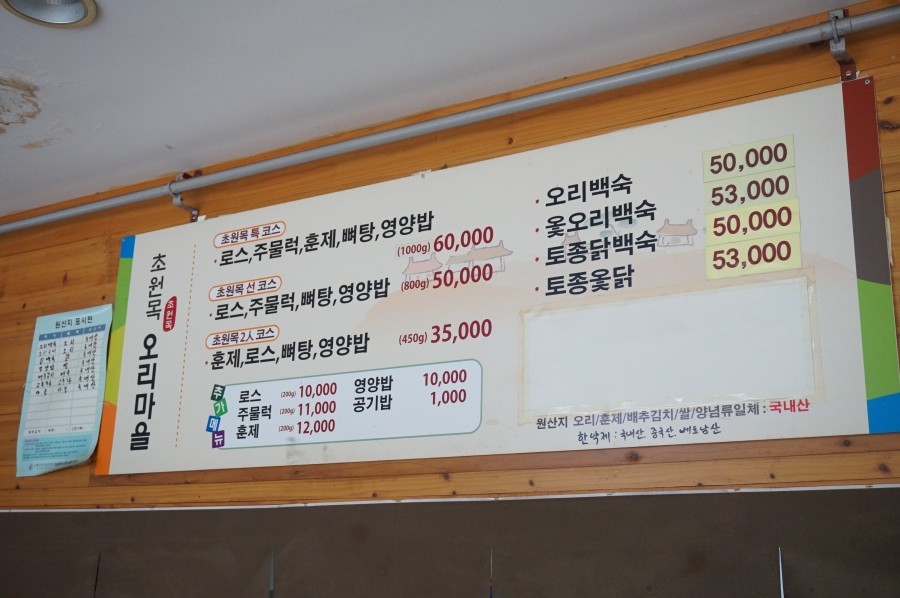 초원목 오리마을
초원목
초원목 특 코스
· 로스,주물럭,훈제,뼈탕,영양밥
(1000g) 60,000
초원목 선 코스
· 로스,주물럭,뼈탕,영양밥 (800g) 50,000
초원목 2人 코스
· 훈제,로스,뼈탕,영양밥 (450g) 35,000
추가메뉴
로스 (200g) 10,000
주물럭 (200g) 11,000
훈제 (200g) 12,000
영양밥 10,000
공기밥 1,000
· 오리백숙 50,000
· 옻오리백숙 53,000
· 토종닭백숙 50,000
· 토종옻닭 53,000
원산지 오리/훈제/배추김치/쌀/양념류일체 : 국내산
한약재 : 국내산, 중국산, 베트남산
원산지 표시판